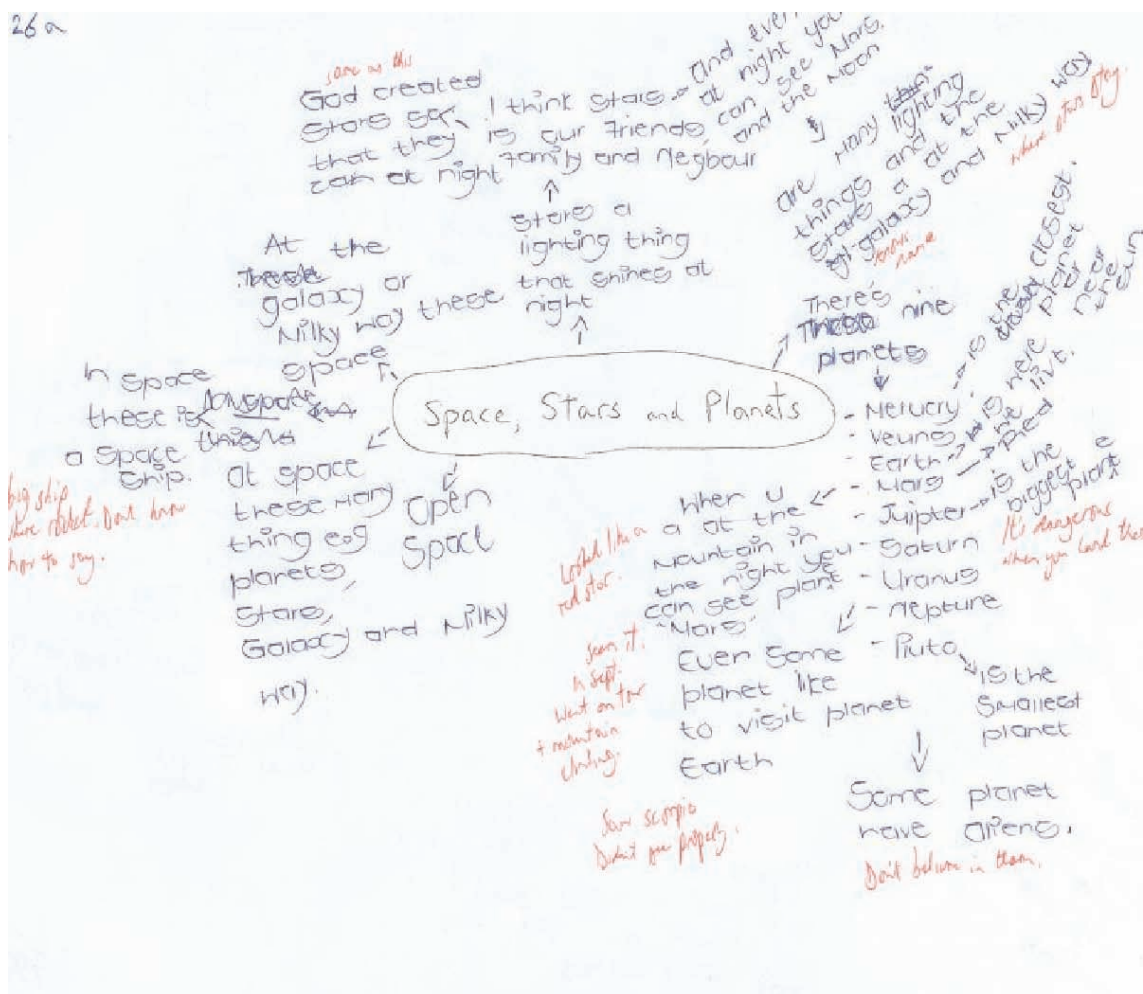 26a
same as this
God created
stars so
that they
can at night
I think stars
is our Friends,
Family and Negbour
and even
at night you
can see Mars
and the Moon
stars a
lighting thing
that shines at
night
are many lighting
things and the
stars a at the
galaxy and Milky way
where stars stay.
name
At the
galaxy or
Milky way these
space
In space
these is
a space
ship.
big ship
like rocket. Dont know
how to say.
at space
these many
thing eog
planets,
stars,
Galaxy and Milky
way.
Open
Space
Space, Stars and Planets
There's
nine
planets
- Merucry
is the closest
planet
or
near
the
sun
- Veuns
- Earth
is here
we live.
- Mars
Red
- Juipter
is the
biggest
plant
It's dangerous
when you land there
- Saturn
- Uranus
- Nepture
- Pluto
is the
smallest
planet
When u
a at the
mountain in
the night ye
can see plant
"Mars"
Looked like a
red star.
Seen it.
In Sept.
Went on tour
+ mountain
climbing.
Even some
planet like
to visit planet
Earth
Saw scorpio
Didn't see properly.
Some planet
have aliens.
Don't believe in them.